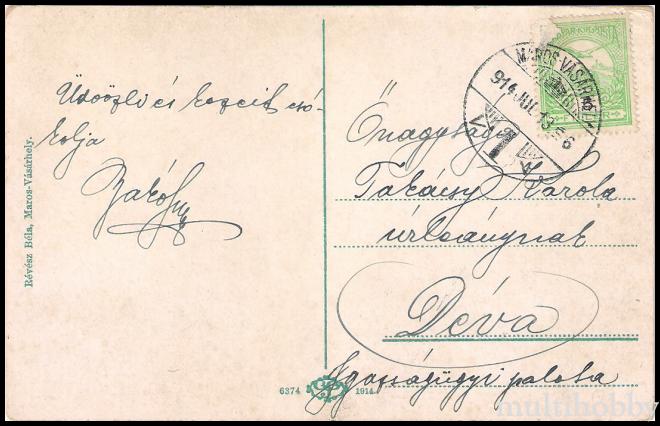 Üdvözli és kezeit csó-
kolja
Zakó
Révész Béla, Maros-Vásárhely.
MAROS-VÁSÁRHELY
914 JUL 13
Őnagysága
Takácsy Karola
úrleánynak
Déva
Igazságügyi palota
6374
1914
multihobby